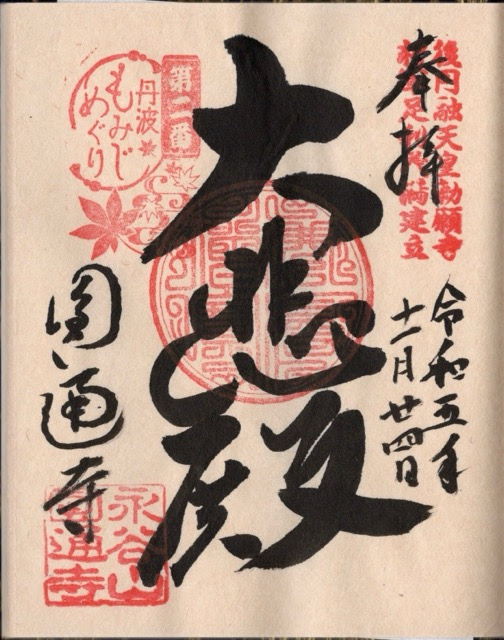 後円融天皇勅願寺
奉拝
令和五年
十一月廿四日
大悲殿
第二番
丹波
もみじ
めぐり
圓通寺
永谷山
圓通寺